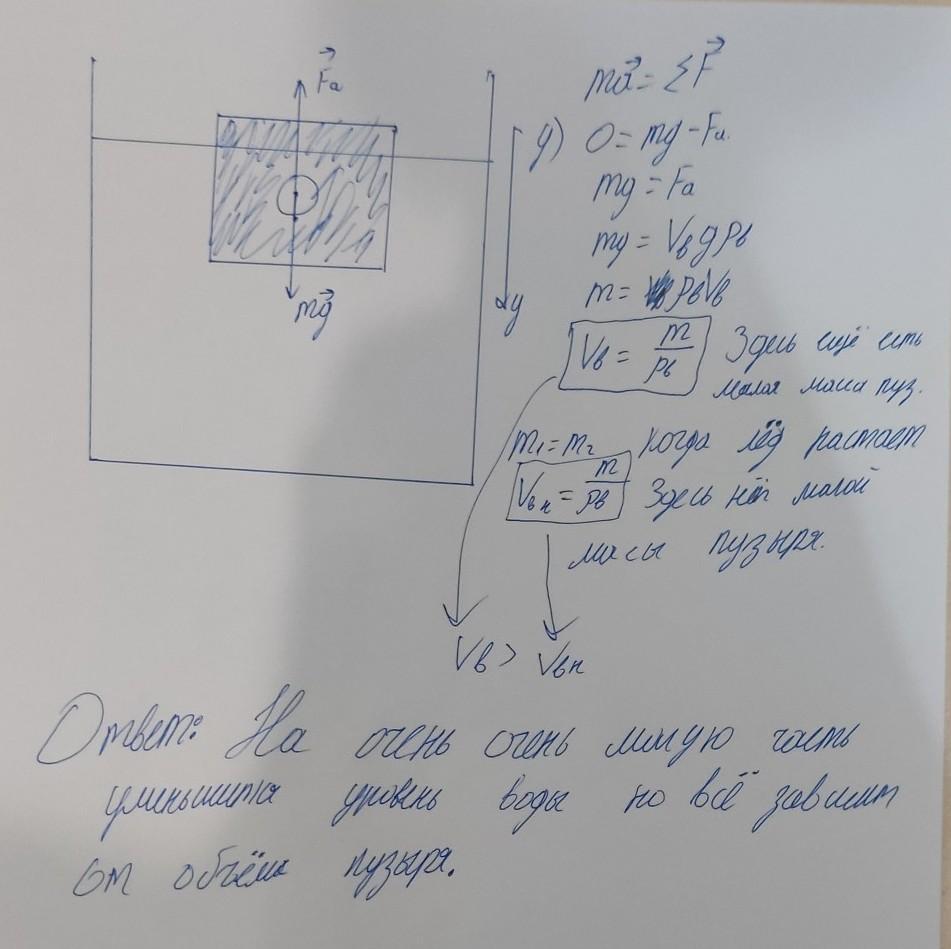 F⃗a
mg⃗
y
ma⃗ = ΣF⃗
y) 0 = mg - Fa.
mg = Fa
mg = Vв g ρв
m = ρвVв
Vв = m/ρв Здесь ещё есть
малая масса пуз.
m₁ = m₂ когда лёд растает
Vвн = m/ρв Здесь нет малой
масы пузыря.
Vв > Vвн
Ответ: На очень очень малую часть
уменьшится уровень воды но всё зависит
от объёма пузыря.